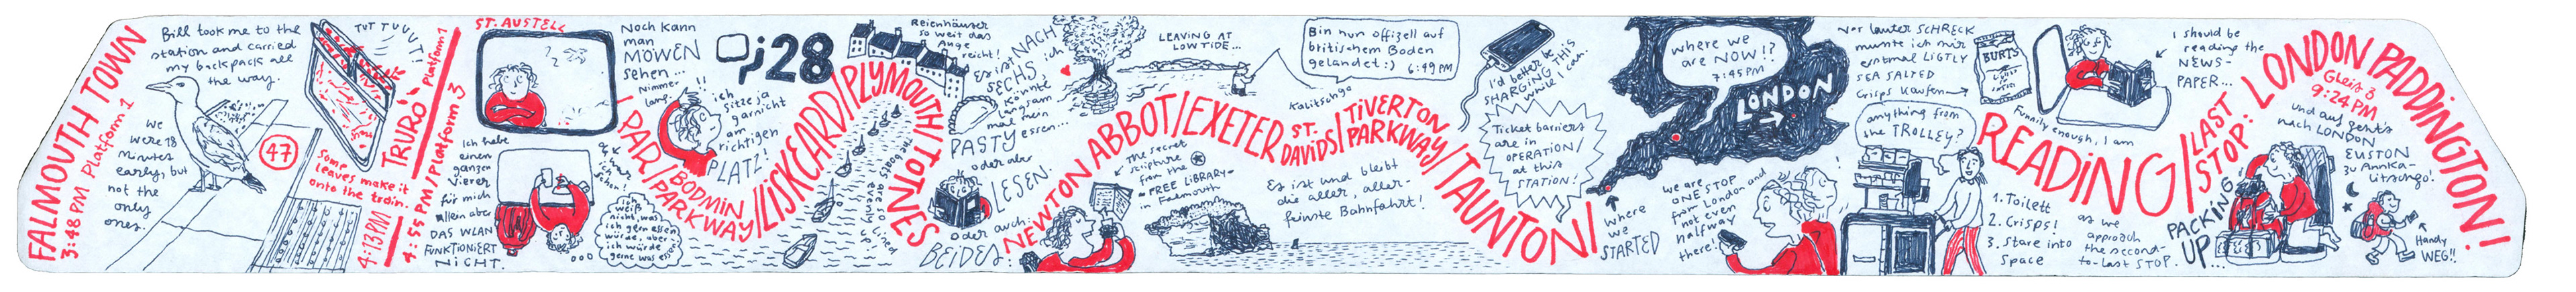 FALMOUTH TOWN
3:48 PM Platform 1
Bill took me to the
station and carried
my backpack all
the way.
We
were 18
minutes
early, but
not the
only
ones.
47
TUT TUUUT!
Some
leaves make it
onto the train.
4:13 PM
TRURO
Platform 1
4:55 PM / Platform 3
ST. AUSTELL
Ich habe
einen
ganzen
Vierer
für mich
allein aber
DAS WLAN
FUNKTIONIERT
NICHT.
Noch kann
man
MÖWEN
sehen...
Nimmer
lang.
ich
weiß
nicht, was
ich gern essen
würde, aber
ich würde
gerne was ess
PAR/
BODMIN
PARKWAY/
LISKEARD/
PLYMOUTH/
TOTNES
J28
!!
ich
sitze ja
garnicht
am
richtigen
PLATZ!
Reienhäuser
so weit das
Auge
reicht!
Es ist NACH
SECHS, ich
könnte
langsam
mal mein
PASTY essen...
oder aber
LESEN.
Oder auch:
BEIDES.
LEAVING AT
LOW TIDE...
NEWTON ABBOT/
EXETER
ST.
DAVIDS/
TIVERTON
PARKWAY/
TAUNTON/
The secret
scripture
from the
FREE LIBRARY
in Falmouth
Bin nun offizell auf
britischem Boden
gelandet :) 6:49 PM
Kalitschga
Es ist und bleibt
die aller, aller-
feinste Bahnfahrt!
I'd better be
SHARGING THIS
while I can.
Ticket barriers
are in
OPERATION/
at this
STATION!
where we
are NOW!?
7:45 PM
LONDON
where
we
STARTED
we are
ONE STOP
from London and
not even
halfway
there!
Vor lauter SCHRECK
musste ich mir
erstmal LIGTLY
SEA SALTED
Crisps kaufen
BURTS
anything from
the TROLLEY?
READING/
1. Toilett
2. Crisps!
3. Stare into
space
as we
approach
the second-
to-last STOP.
Funnily enough, I am
I should be
reading the
NEWS-
PAPER...
LAST
STOP:
LONDON PADDINGTON!
Gleis 3
9:24 PM
PACKING
UP...
und auf geht's
nach LONDON
EUSTON
zu Annka-
Litschgo!
Handy
WEG!!